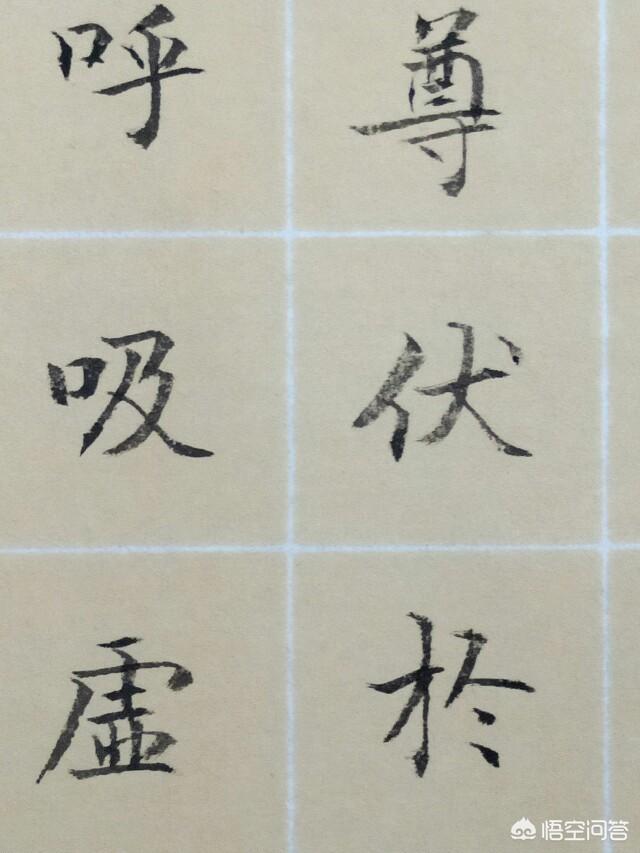 尊伏於
呼吸虛
悟空问答